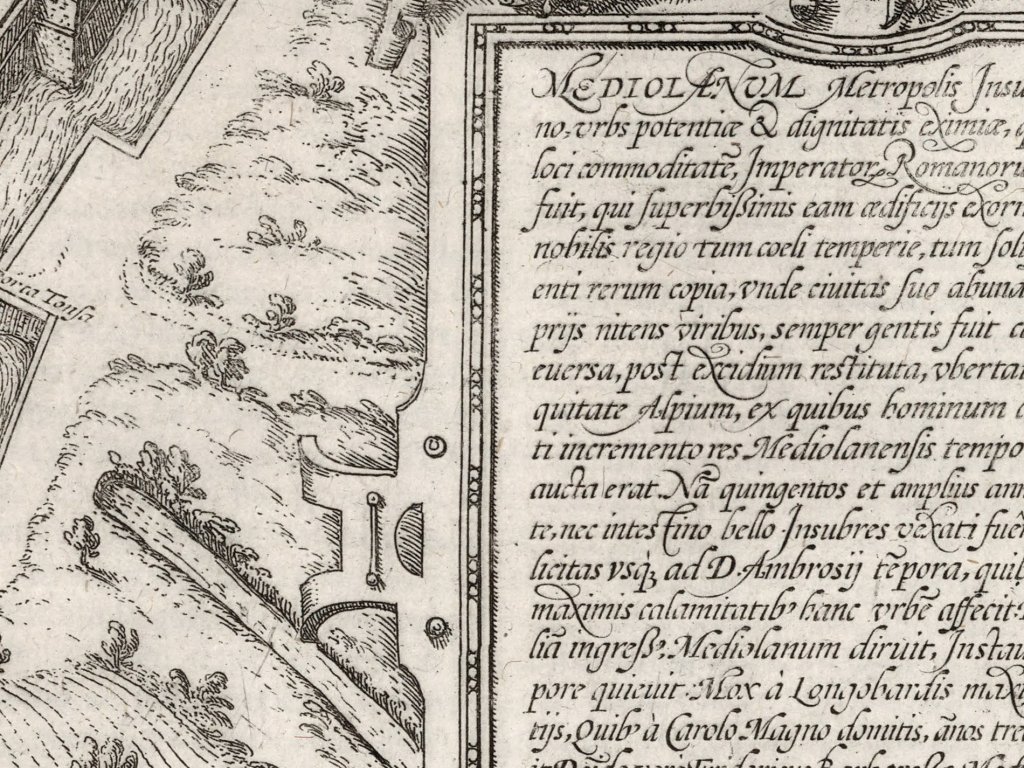 MEDIOLÆNVM Metropolis Insu
no, vrbs potentiæ & dignitatis eximiæ,
loci commoditatē, Imperator Romanoru
fuit, qui superbißimis eam ædificijs exor
nobilis regio tum coeli temperie, tum soli
enti rerum copia, vnde ciuitas suo abund
prijs nitens viribus, semper gentis fuit c
euersa, post excidium restituta, vberta
quitate Alpium, ex quibus hominum
ti incremento res Mediolanensis tempo
aucta erat. Nā quingentos et amplius ann
te, nec intestino bello Insubres vexati fuē
licitas vsq̃ ad D. Ambrosij tēpora, qui
maximis calamitatib' hanc vrbē affecit
liā ingreß'. Mediolanum diruit, Instau
pore quieuit. Mox à Longobardis maxi
tijs, Quib' à Carolo Magno domitis, ānos tre
Porta Tonsa